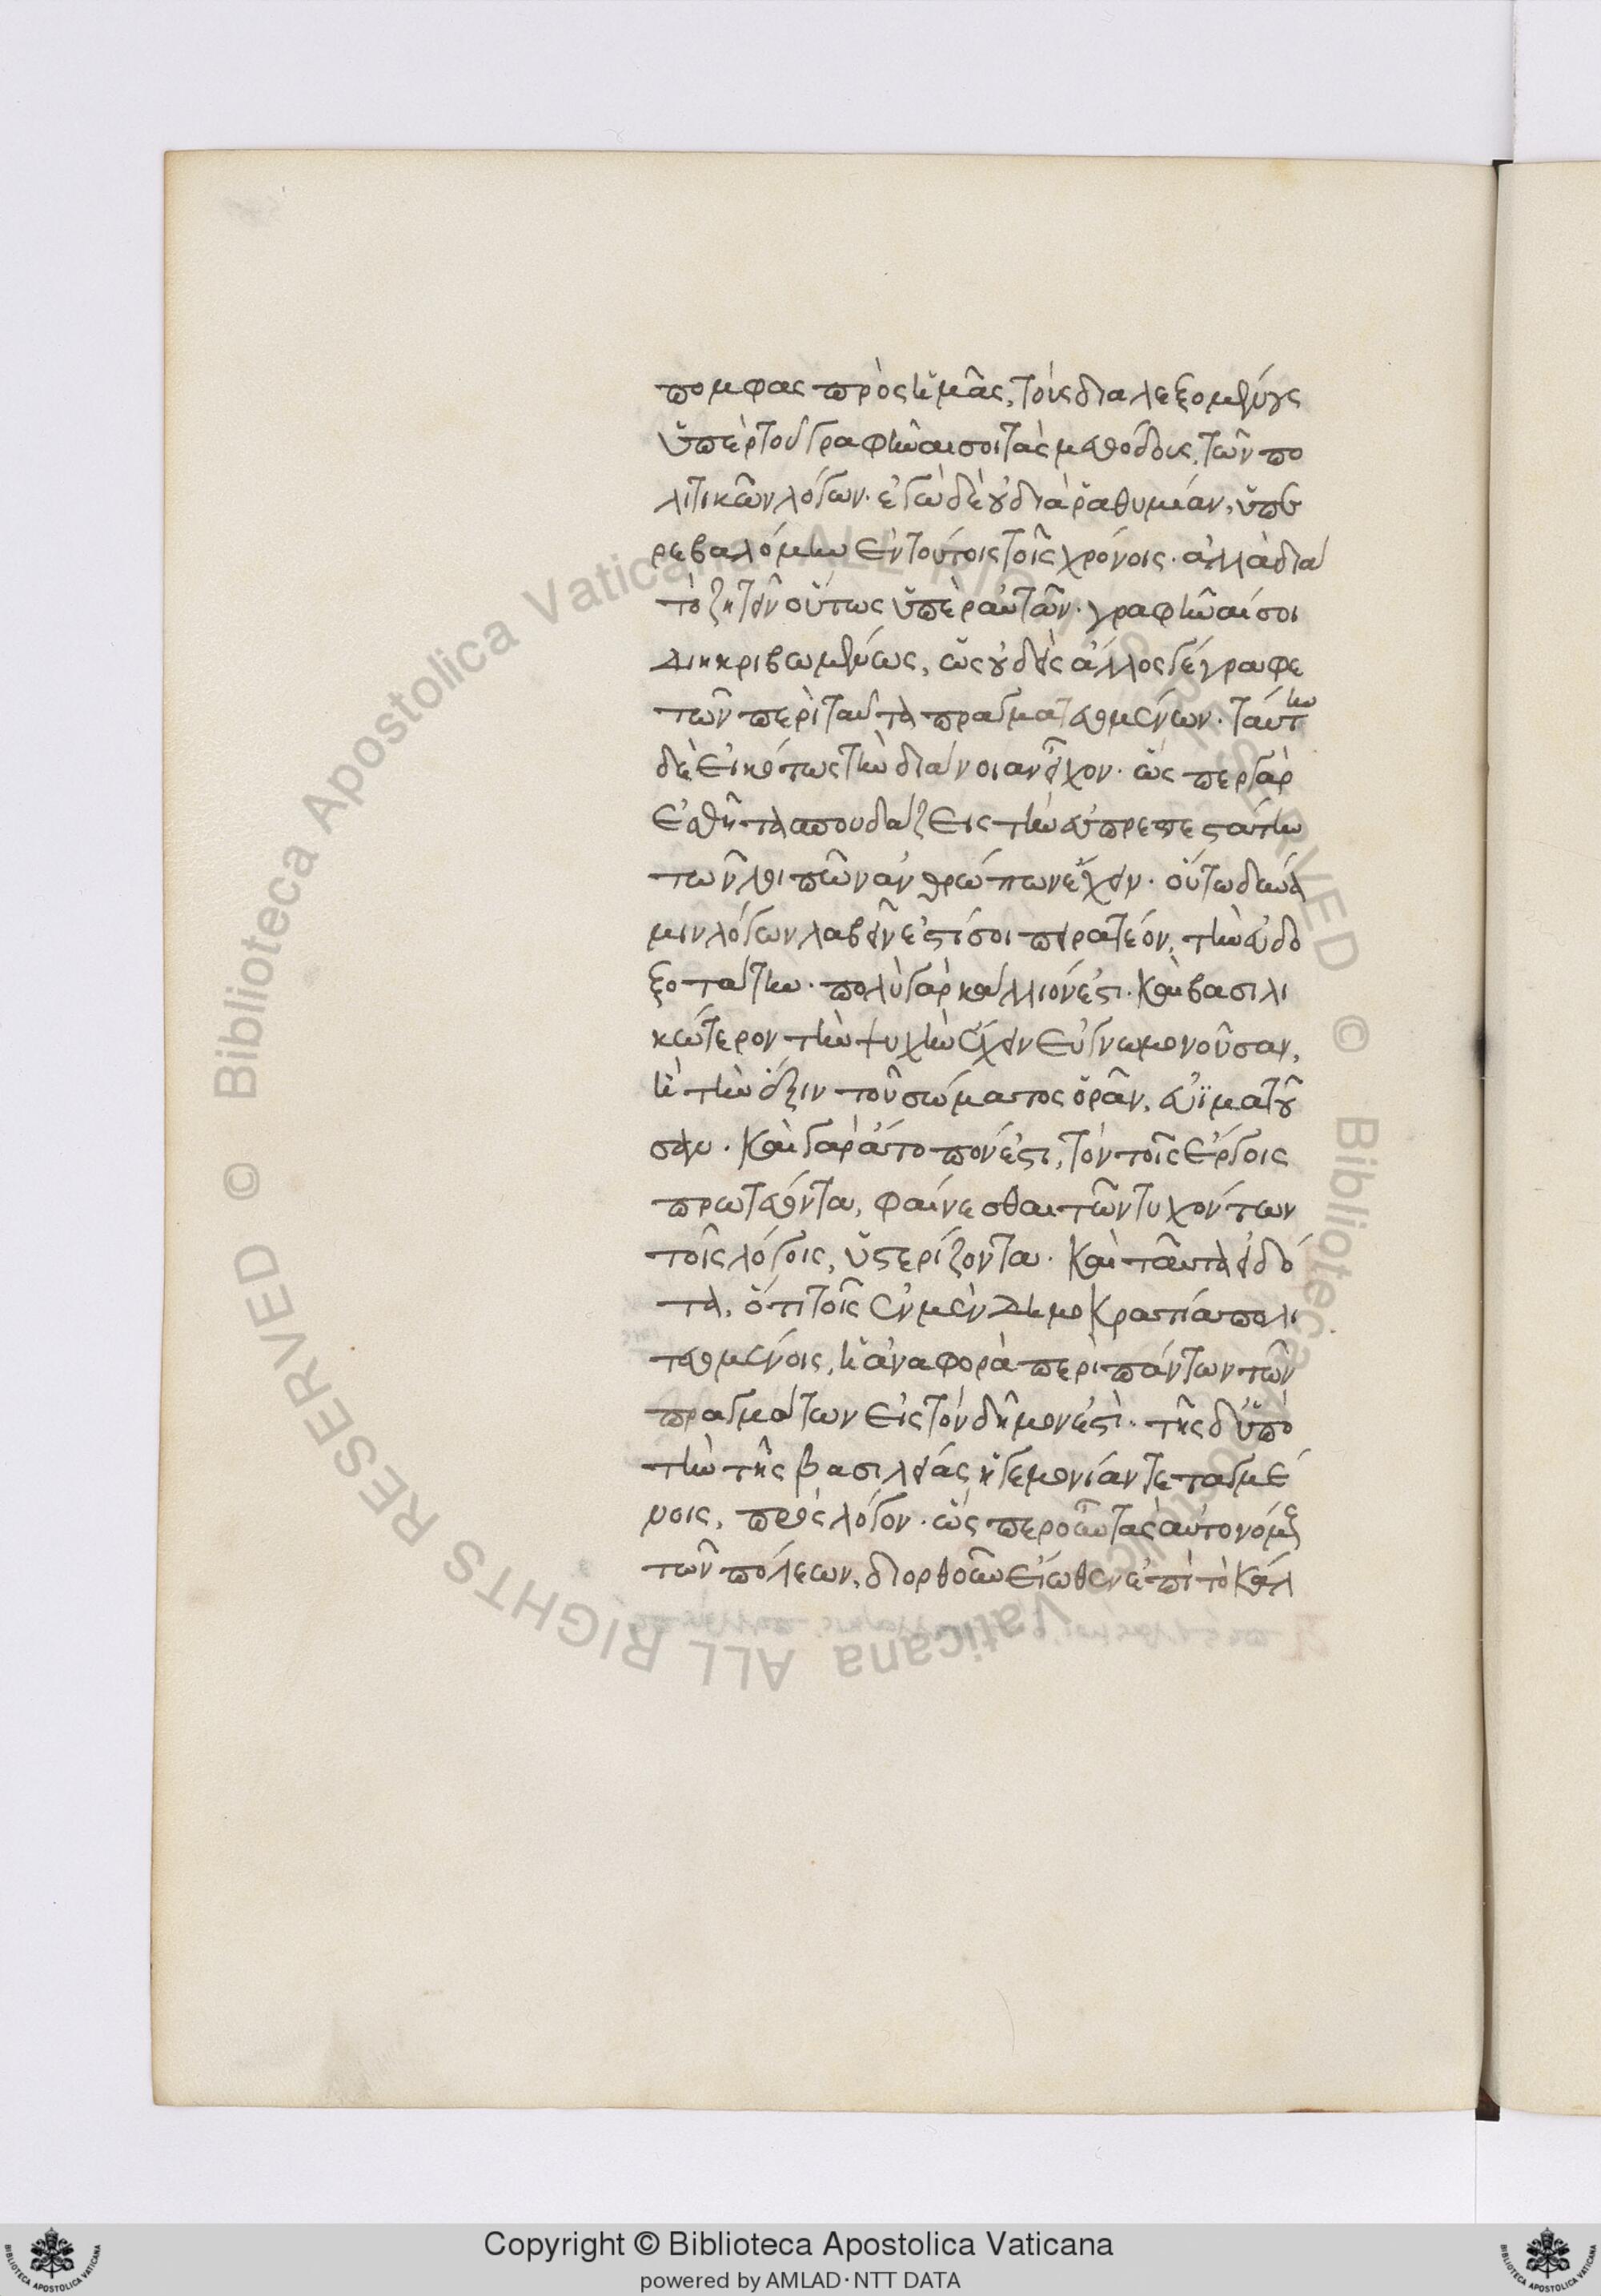 πομφας πρὸς ἡμᾶς, τοὺς διαλεξομένους
ὑπὲρ τοῦ γραφῆναι σοι τὰς μεθόδους, τῶν πο
λιτικῶν λόγων. ἐγὼ δὲ οὐ διὰ ῥαθυμίαν, ὑπε
ρεβαλόμην ἐν τούτοις τοῖς χρόνοις. ἀλλὰ διὰ
τὸ ζητεῖν οὕτως ὑπὲρ αὐτῶν. γραφῆναί σοι
διηκριβωμένως, ὡς οὐδεὶς ἄλλος γέγραφε
τῶν περὶ ταῦτα πραγματευομένων. ταύτην
δὲ εἰκότως τὴν διάνοιαν εἶχον. ὥς περ γὰρ
ἐσθῆτα σπουδάζεις τὴν εὐπρεπεστάτην
τῶν λοιπῶν ἀνθρώπων ἔχειν. οὕτω δύνα
μιν λόγων λαβεῖν ἐστί σοι πειρατέον, τὴν εὐδο
ξοτάτην. πολὺ γὰρ κάλλιόν ἐστι. καὶ βασιλι
κώτερον τὴν ψυχὴν ἔχειν εὐγνωμονοῦσαν,
ἢ τὴν ἕξιν τοῦ σώματος ὁρᾶν, εὐϊματοῦ
σαν. καὶ γὰρ ἄτοπόν ἐστι, τὸν τοῖς ἔργοις
πρωτεύοντα, φαίνεσθαι τῶν τυχόντων
τοῖς λόγοις, ὑστερίζοντα. καὶ ταῦτα εἰδό
τα, ὅτι τοῖς ἐν μὲν δημοκρατίᾳ πολι
τευομένοις, ἡ ἀναφορὰ περὶ πάντων τῶν
πραγμάτων εἰς τὸν δῆμον ἐστὶ. τῆς δ' ὑπὸ
τὴν τῆς βασιλείας ἡγεμονίαν τεταγμέ
νοις, πρὸς λόγον. ὥς περ οὖν τὰς αὐτονόμους
τῶν πόλεων, διορθοῦν εἴωθεν ἐπὶ τὸ κάλ
Copyright © Biblioteca Apostolica Vaticana
powered by AMLAD·NTT DATA